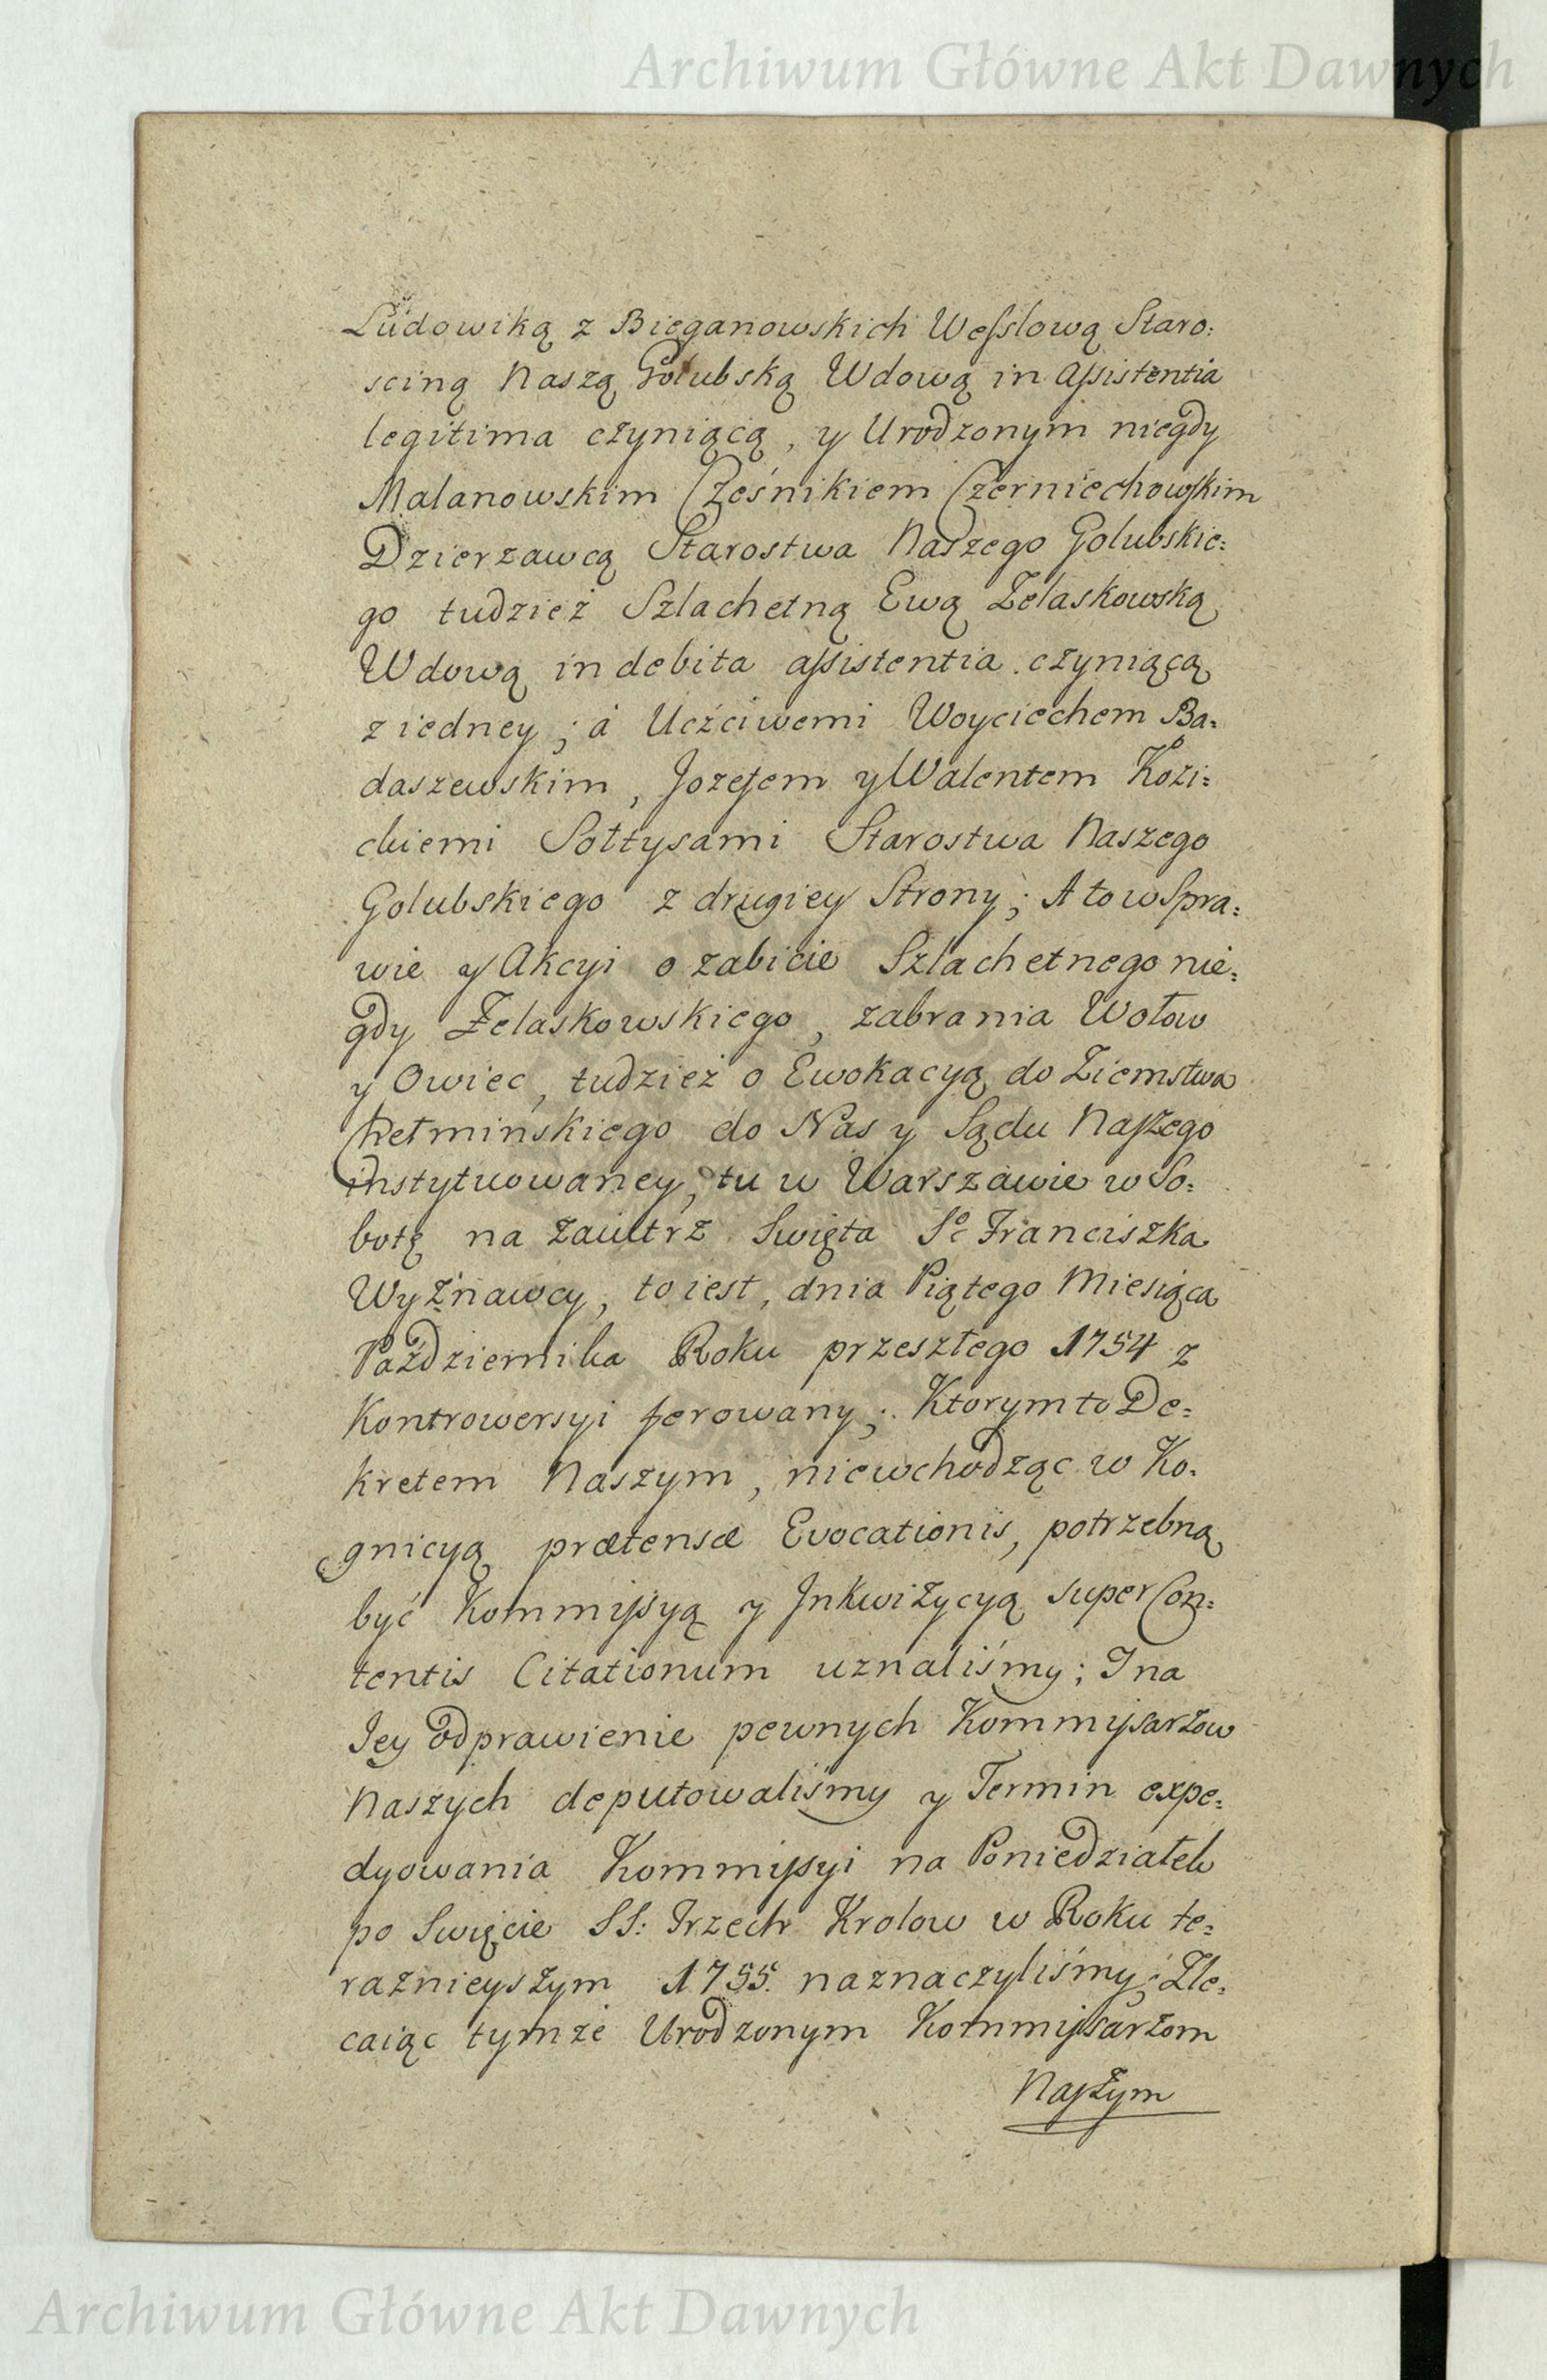 Archiwum Główne Akt Dawnych
Ludowiką z Bieganowskich Wesslową Staro:
sciną Naszą Golubską Wdową in assistentia
legitima czyniącą, y Urodzonym niegdy
Malanowskim Cześnikiem Czerniechowskim
Dzierzawcą Starostwa Naszego Golubskie:
go tudzież Szlachetną Ewą Żelaskowską
Wdową in debita assistentia czyniącą
z iedney; á Uczciwemi Woyciechem Ba:
daszewskim, Jozefem y Walentem Kozi:
ckiemi Sołtysami Starostwa Naszego
Golubskiego z drugiey Strony; A to w Spra:
wie y Akcyi o zabicie Szlachetnego nie:
gdy Żelaskowskiego, zabrania Wołow
y Owiec, tudzież o Ewokacyą do Ziemstwa
Chełminskiego do Nas y Sądu Naszego
instytuowaney, tu w Warszawie w So:
botę na zaiutrz Swięta So Franciszka
Wyznawcy, to iest, dnia Piątego Miesiąca
Października Roku przeszłego 1754 z
Kontrowersyi ferowany; Ktorym to De:
kretem Naszym, niewchodząc w Ko:
gnicyą prætensæ Evocationis, potrzebną
być Kommissyą y Jnkwizycyą super Con:
tentis Citationum uznaliśmy; I na
Jey odprawienie pewnych Kommissarzow
Naszych deputowaliśmy y Termin expe:
dyowania Kommissyi na Poniedziałek
po Swięcie SS: Trzech Krolow w Roku te:
raznieyszym 1755. naznaczyliśmy; Zle:
caiąc tymże Urodzonym Kommissarzom
Naszym
Archiwum Główne Akt Dawnych